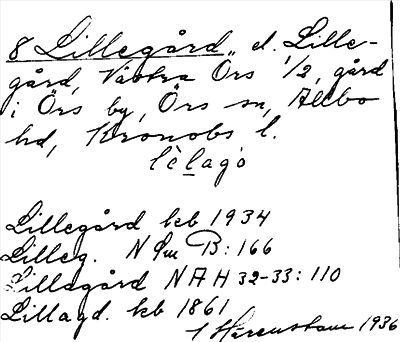 8 Lillegård„ el. Lille-
gård, Västra Örs 1/2, gård
i Örs by, Örs sn, Allbo
hd, Kronobs l.
lèlagò
Lillegård kb 1934
Lilleg. N Sm B: 166
Lillegård NAH 32-33: 110
Lillagd. kb 1861
1936